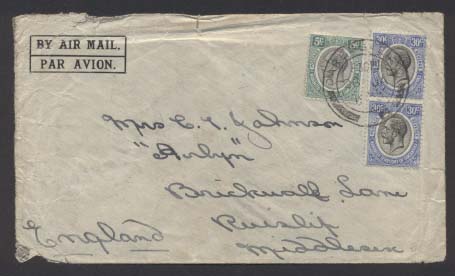 BY AIR MAIL.
PAR AVION.
5c 5c
30c 30c
30c 30c
Mrs C. E. Johnson
"Arlyn"
Brickwall Lane
Ruislip
Middlesex
England